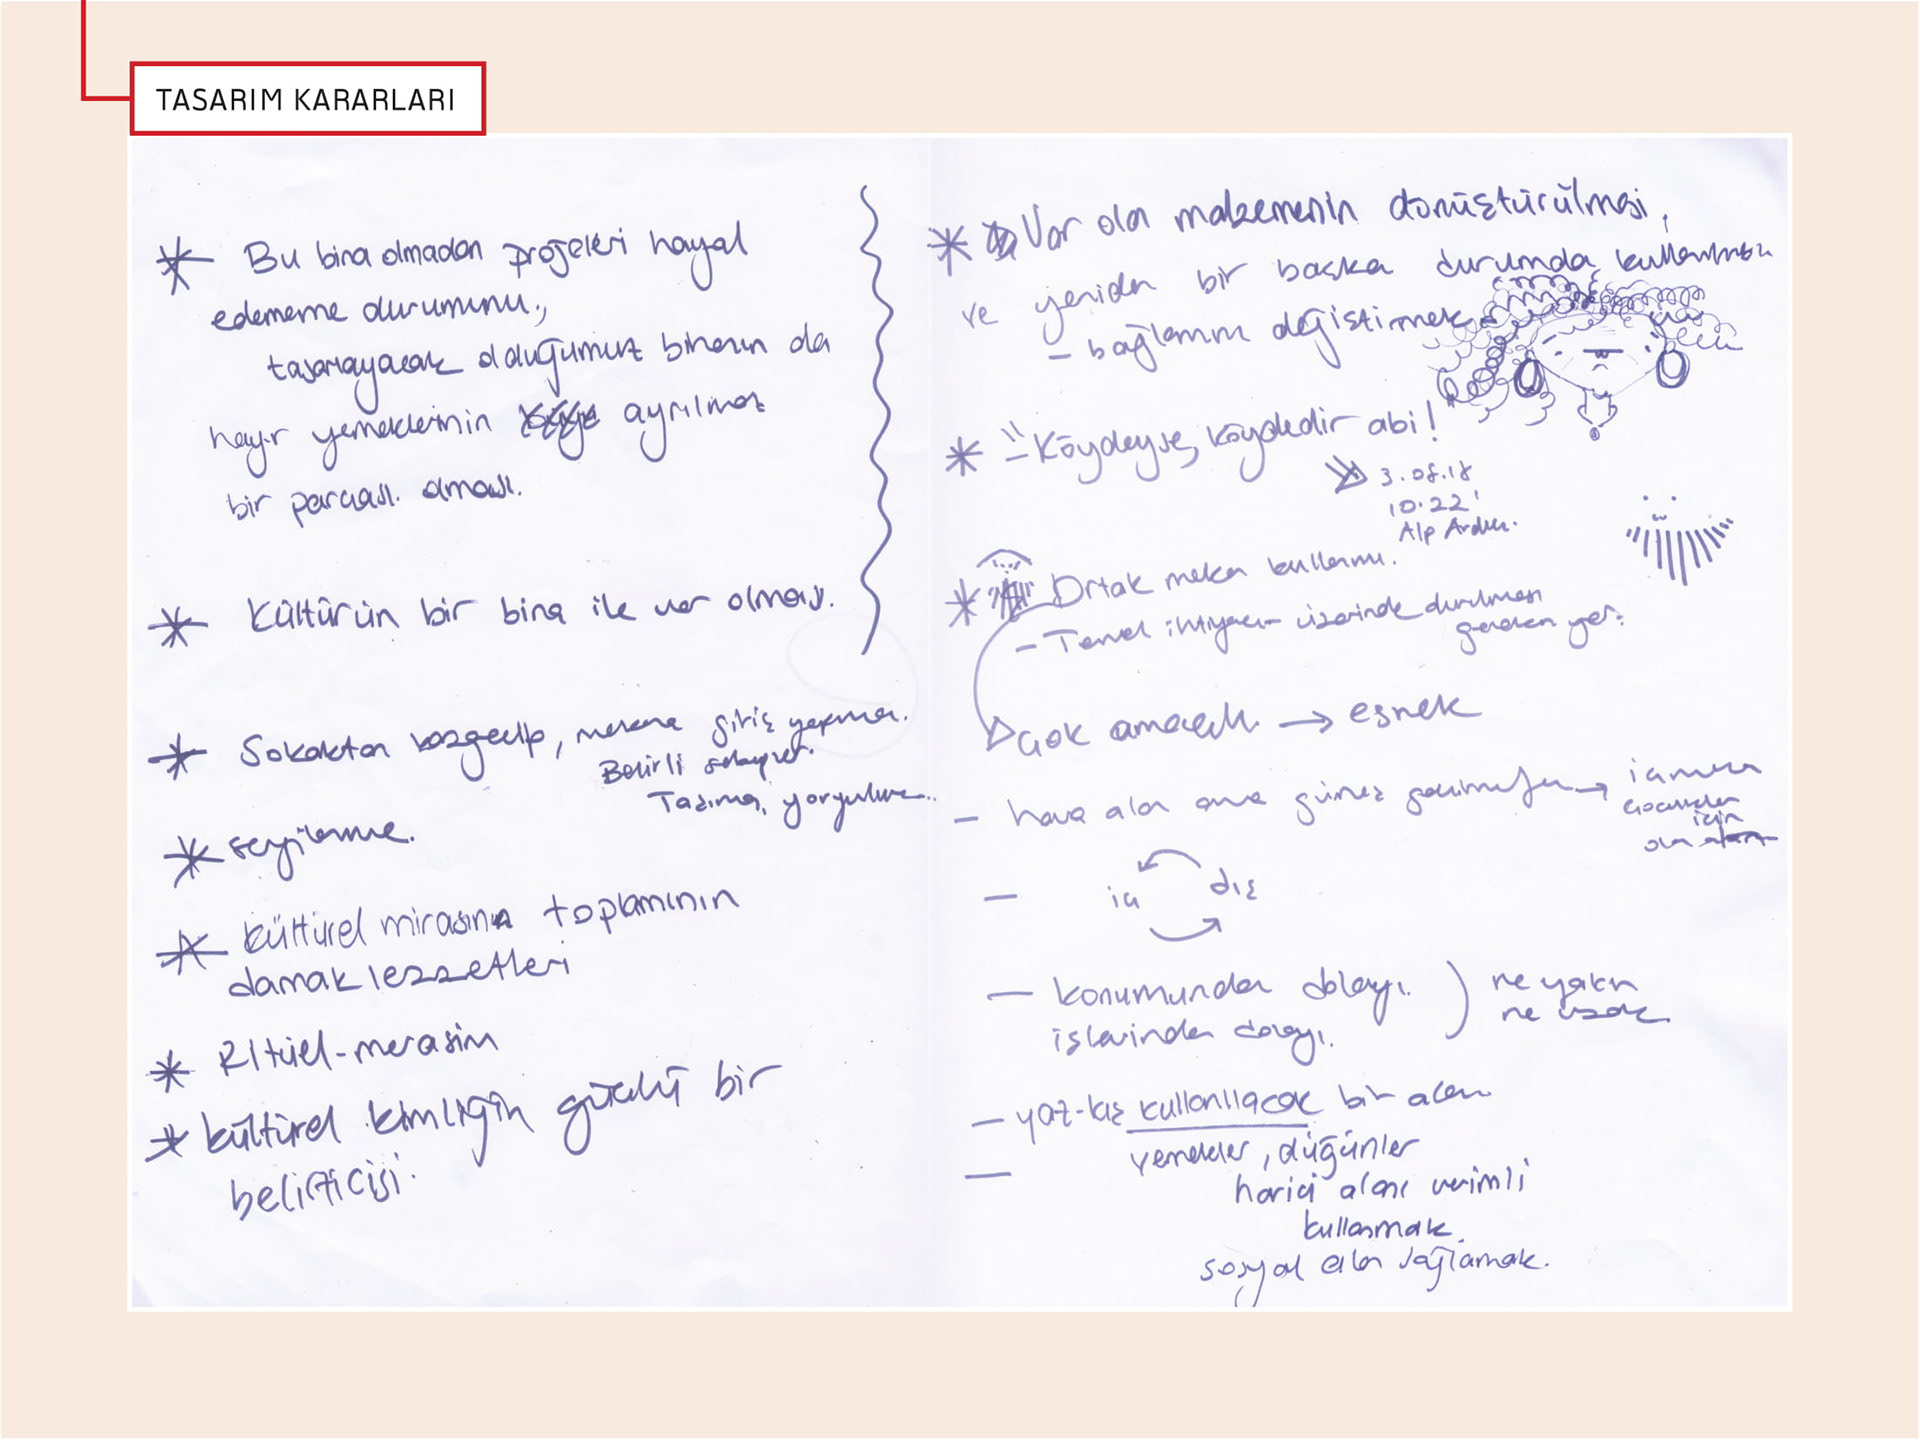 TASARIM KARARLARI
* Bu bina olmadan projeleri hayal
edememe durumunu,
tasarlayacak olduğumuz binanın da
hayır yemeklerinin ayrılmaz
bir parçası olması.
* Kültürün bir bina ile var olması.
* Sokaktan vazgeçip, mekana giriş yapma.
Belirli
Taşıma, yorgunluk..
* sergileme.
* kültürel mirasının toplamının
damak lezzetleri
* Ritüel-merasim
* kültürel kimliğin güçlü bir
belirticisi.
* Var olan malzemenin dönüştürülmesi,
ve yeniden bir başka durumda kullanılması
- bağlamını değiştirmek
* "Köydeyse, köydedir abi!"
3.08.18
10.22'
Alp
* Ortak mekan kullanımı.
- Temel ihtiyaçlar üzerinde durulması
gereken yer.
çok amaçlı → esnek
- hava alan ama güneş görmeyen →
çocuklar
için
olan alan
- iç dış
- konumundan dolayı. ) ne yakın
işlevinden dolayı. ne uzak
- yaz-kış kullanılacak bir alan
yemekler, düğünler
- harici alanı verimli
kullanmak.
sosyal alan sağlamak.